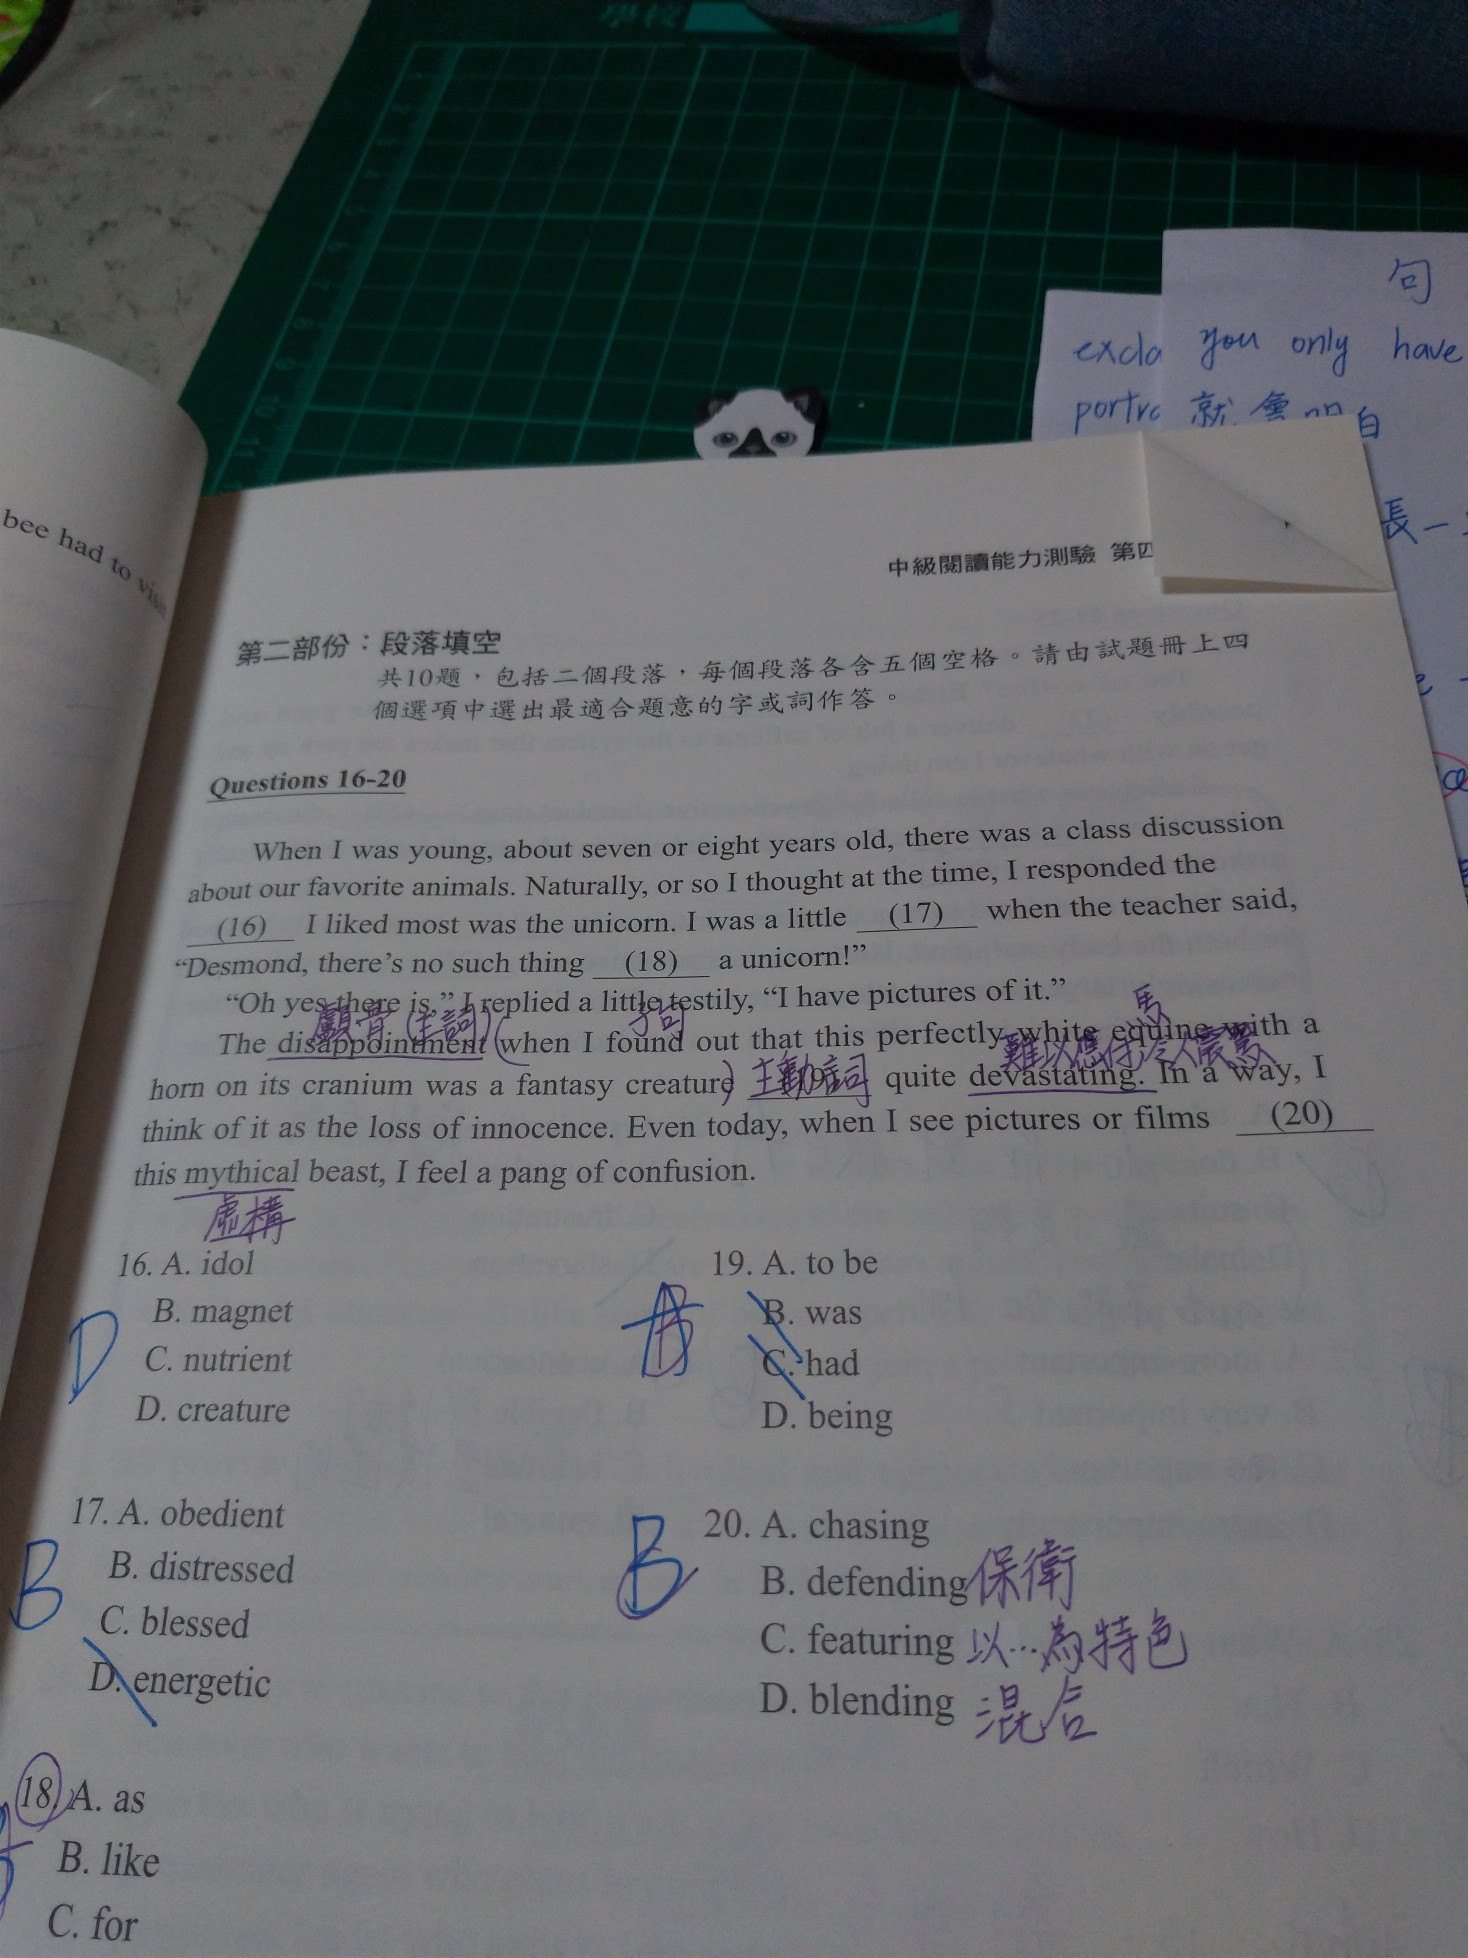 句
excla you only have
portra 就會明白
長一
bee had to visit
中級閱讀能力測驗 第四
第二部份：段落填空
共10題，包括二個段落，每個段落各含五個空格。請由試題冊上四
個選項中選出最適合題意的字或詞作答。
Questions 16-20
When I was young, about seven or eight years old, there was a class discussion
about our favorite animals. Naturally, or so I thought at the time, I responded the
(16) I liked most was the unicorn. I was a little (17) when the teacher said,
“Desmond, there’s no such thing (18) a unicorn!”
“Oh yes there is,” I replied a little testily, “I have pictures of it.”
(主詞) 子句 馬
The disappointment (when I found out that this perfectly white equine with a
難以
horn on its cranium was a fantasy creature) (19) quite devastating. In a way, I
主動詞
think of it as the loss of innocence. Even today, when I see pictures or films (20)
this mythical beast, I feel a pang of confusion.
虛構
16. A. idol
B. magnet
D
C. nutrient
D. creature
17. A. obedient
B. distressed
B
C. blessed
D. energetic
18. A. as
B. like
C. for
19. A. to be
B. was
B
C. had
D. being
20. A. chasing
B
B. defending 保衛
C. featuring 以…為特色
D. blending 混合